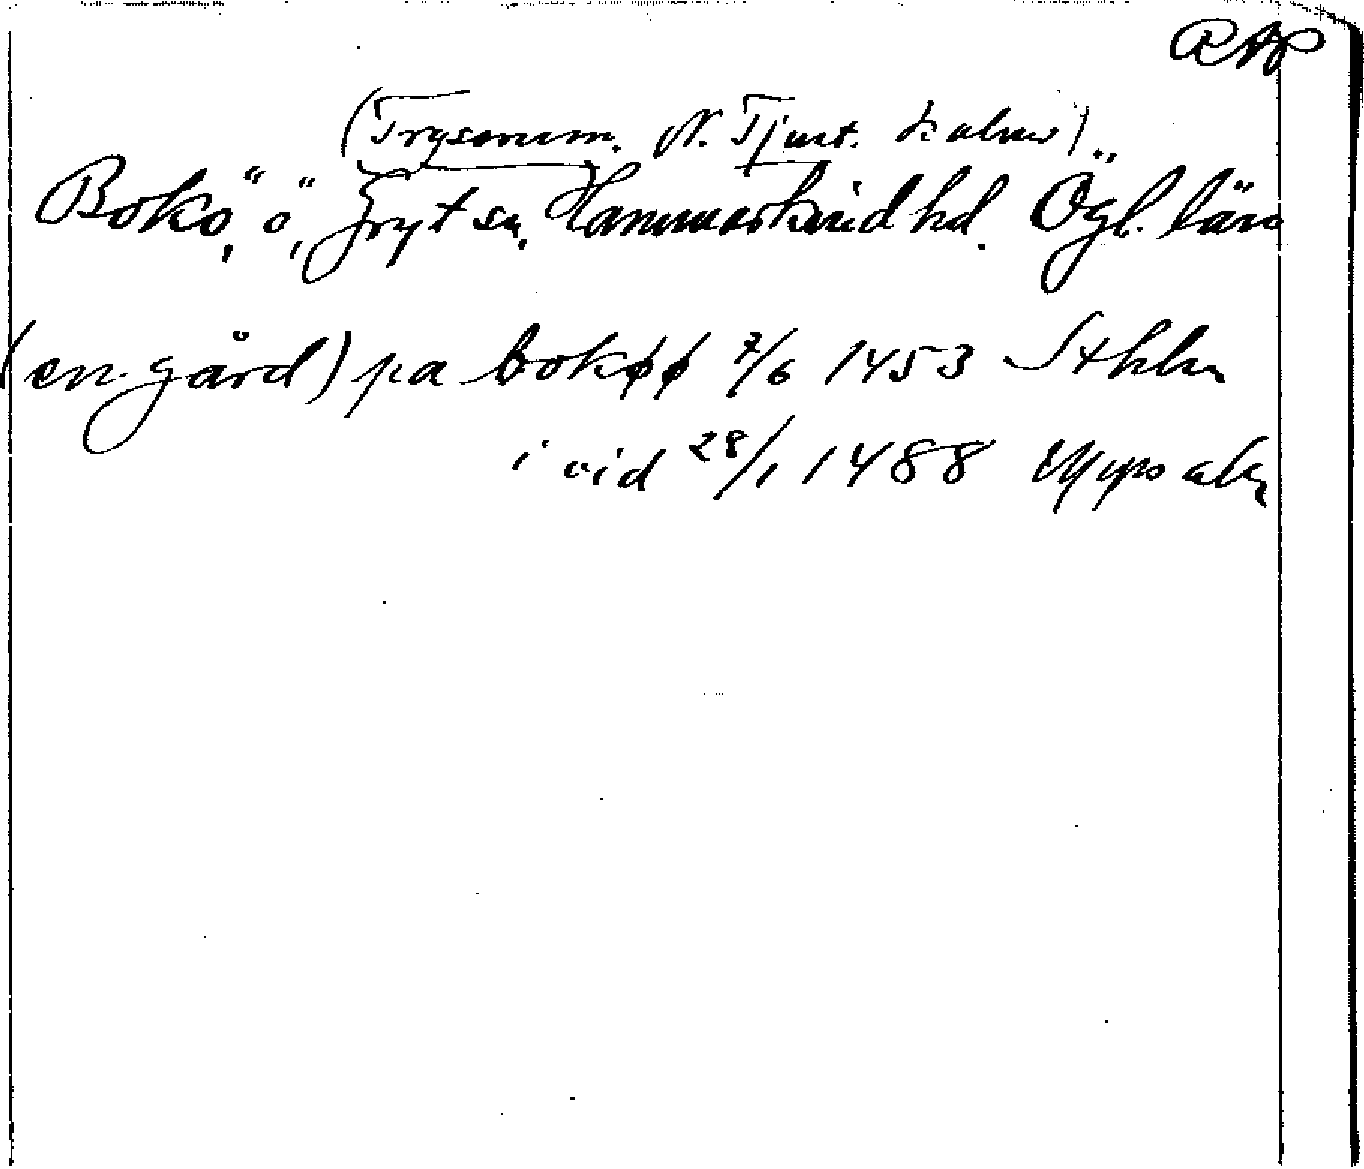 RAP
(Tryserum. N. Tjust. Kalmar)
Bokö, ö, Gryt sn, Hammarkind hd. Ögl. län
(en gård) pa bokøø 7/6 1453 Sthlm
i vid 28/1 1488 Uppsala